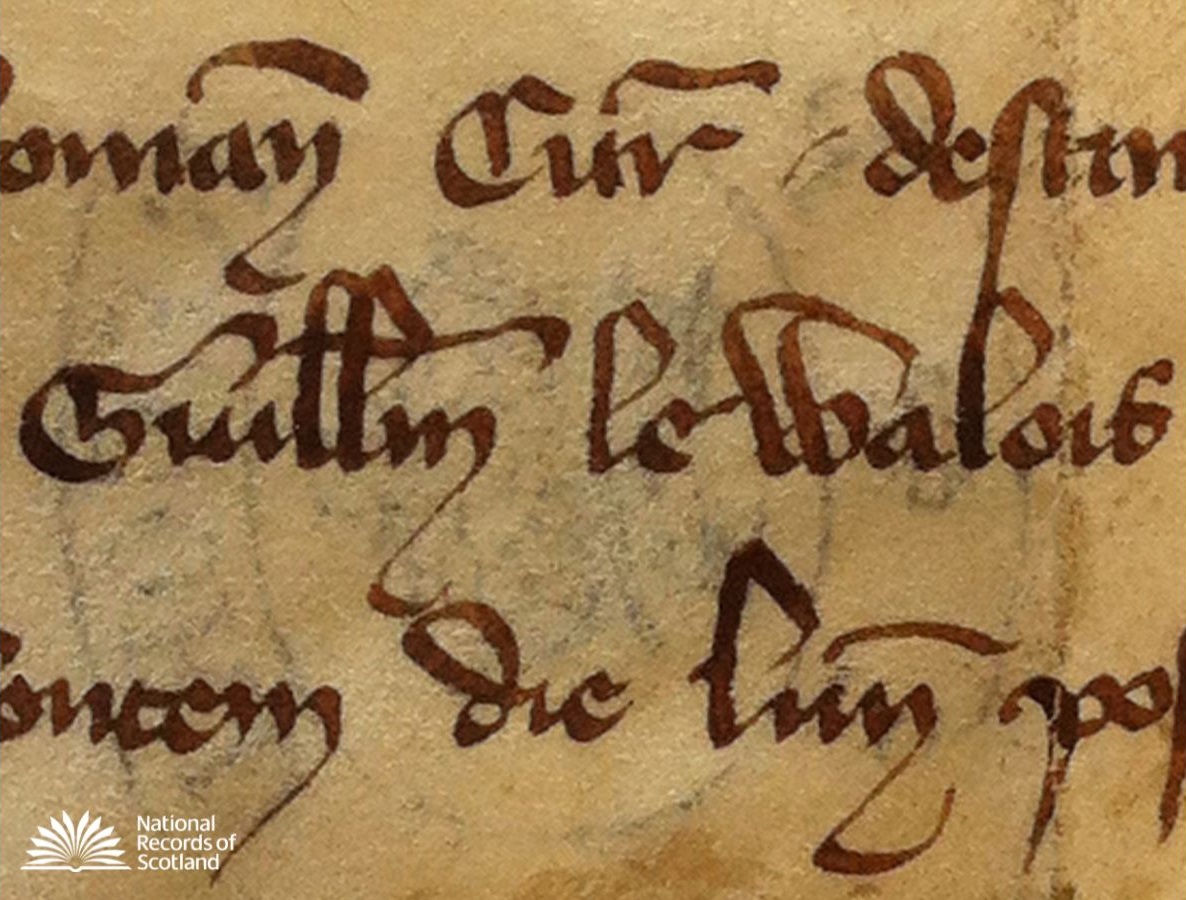 oman̄ Cur̄ destin
Guillm̄ le Walois
ontem die lun̄ pos
National
Records of
Scotland